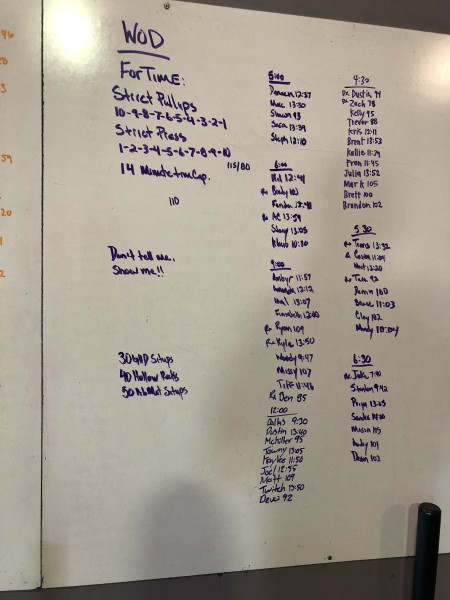 WOD
For Time:
Strict Pullups
10-9-8-7-6-5-4-3-2-1
Strict Press
1-2-3-4-5-6-7-8-9-10
115/80
14 Minute Cap.
110
Don't tell me.
Show me!!
30 GHD Situps
40 Hollow Rocks
50 AbMat Situps
5:00
12:37
13:30
Shawn 93
Sara 13:39
Steph 12:10
6:00
12:41
103
Rx AC 13:59
Stacy 13:05
10:30
9:00
11:57
12:12
13:07
12:00
Rx Ryan 109
Rx Kyle 13:50
Woody 9:47
Missy 107
Tiff 11:46
Rx Den 85
12:00
Dallas 9:30
Dustin 13:40
McKiller 95
Tawny 13:05
Kaylee 11:50
Joel 12:55
Matt 109
Twitch 13:50
Devo 92
4:30
Rx Dustin 94
Rx Zach 78
Kelly 95
Trevor 88
Kris 12:11
Brent 13:53
Kallie 11:29
Fran 11:45
Julia 13:52
Mark 105
Brett 100
Brandon 102
5:30
Rx Travis 13:32
11:04
12:20
Rx Tate 92
Darrin 100
11:03
Clay 102
Mandy 10:04
6:30
Rx Jake 7:10
9:42
Priya 13:25
Sandra
115
Andy 101
Dawn 102
96
3
59
20
2